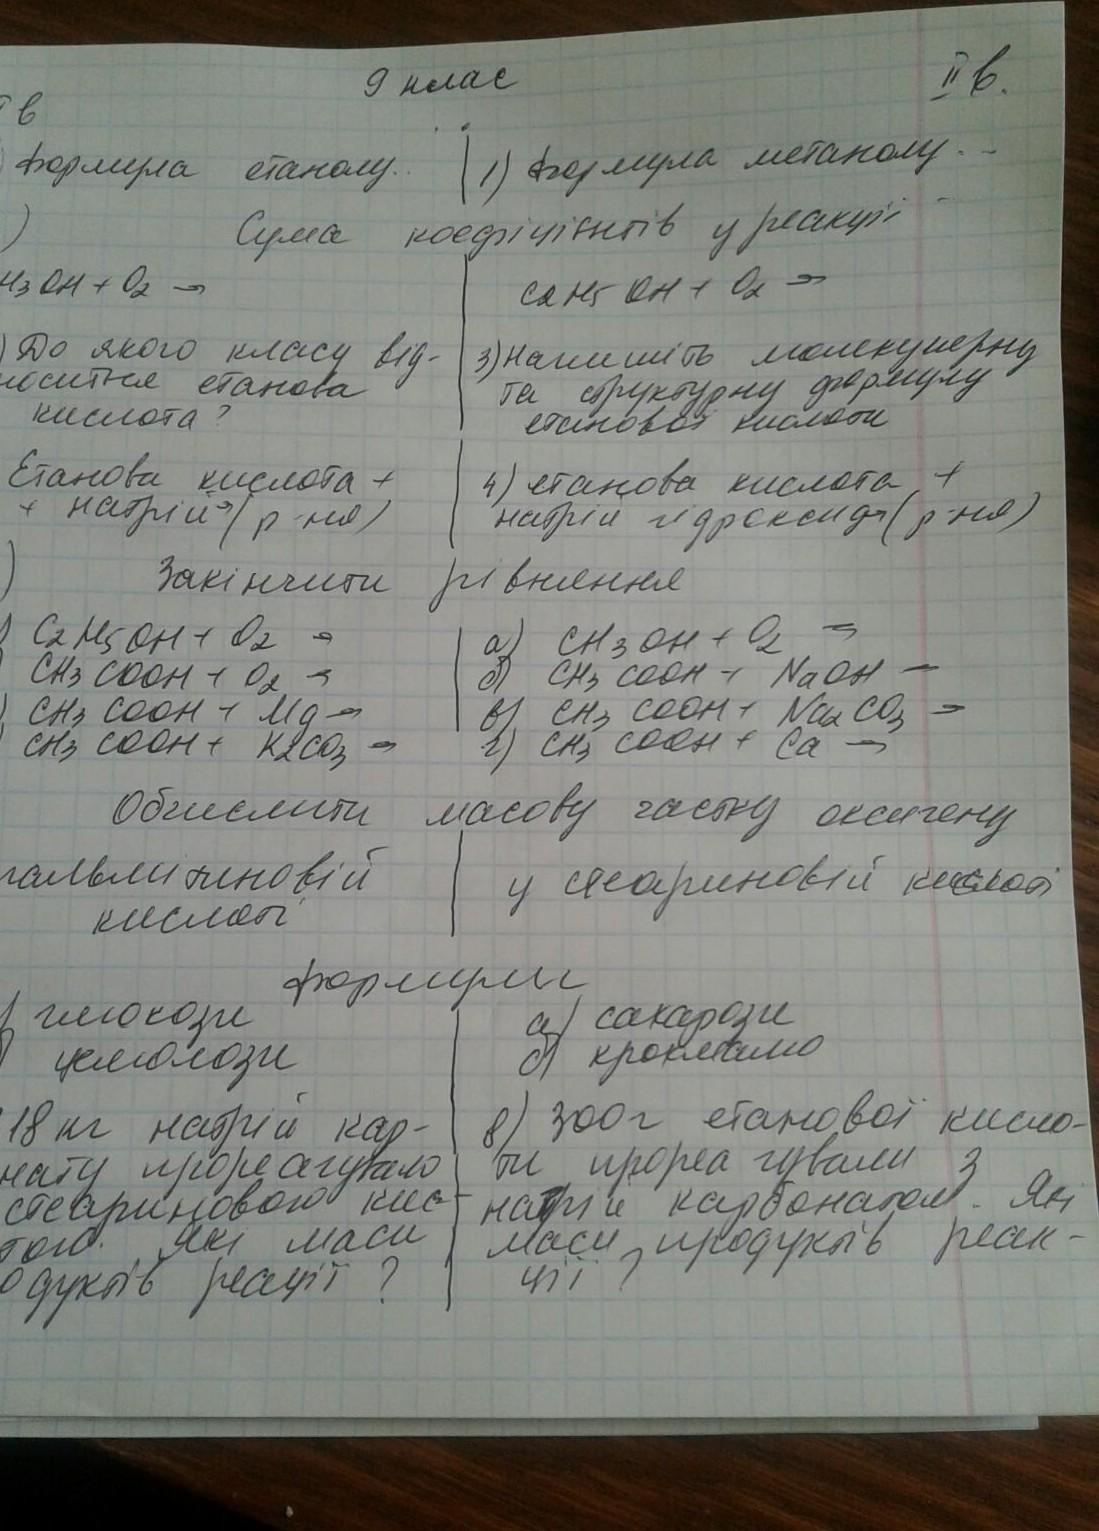 9 клас
І в
ІІ в.
формула етанолу..
1) формула метанолу...
) Сума коефіцієнтів у реакції
H3OH + O2 →
C2H5OH + O2 →
) До якого класу від-
носиться етанова
кислота?
3) Напишіть молекулярну
та структурну формулу
етанової кислоти
Етанова кислота +
+ натрій → (р-ня)
4) етанова кислота +
натрій гідроксид → (р-ня)
) Закінчити рівняння
) C2H5OH + O2 →
CH3COOH + O2 →
) CH3COOH + Mg →
) CH3COOH + K2CO3 →
а) CH3OH + O2 →
б) CH3COOH + NaOH →
в) CH3COOH + Na2CO3 →
г) CH3COOH + Ca →
Обчислити масову частку оксигену
пальмітиновій
кислоті
у стеариновій кислоті
формули
) глюкози
) целюлози
а) сахарози
б) крохмалю
18 кг натрій кар-
нату прореагувало
стеариновою кис-
тою. Які маси
одуктів реації?
8) 300г етанової кисло-
ти прореагували з
натрій карбонатом. Які
маси продуктів реак-
ції?